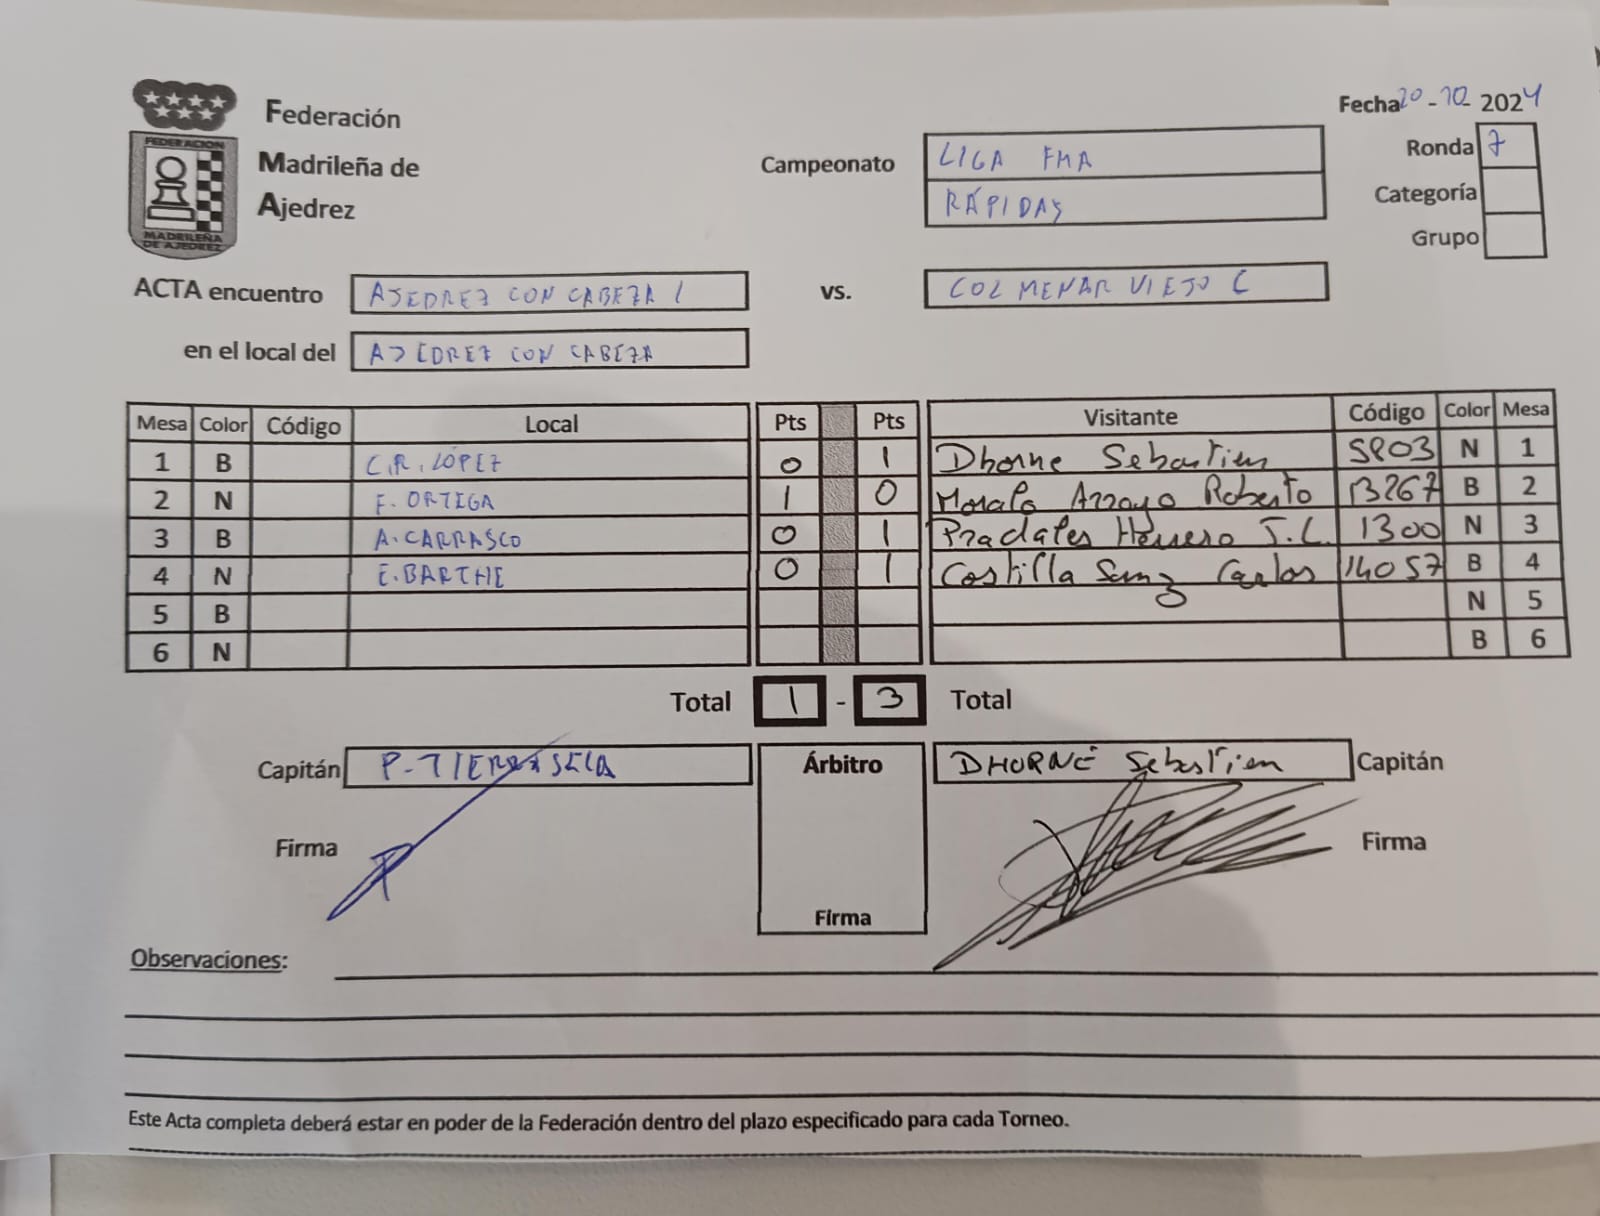 Federación
Madrileña de
Ajedrez
FEDERACION
MADRILEÑA
DE AJEDREZ
Fecha 20 - 10 - 2024
Campeonato LIGA FMA
RÁPIDAS
Ronda 7
Categoría
Grupo
ACTA encuentro AJEDREZ CON CABEZA 1 vs. COLMENAR VIEJO C
en el local del AJEDREZ CON CABEZA
Mesa Color Código Local Pts Pts Visitante Código Color Mesa
1 B C.R. LÓPEZ 0 1 Dhorne Sebastien 5803 N 1
2 N F. ORTIGA 1 0 Morala Arroyo Roberto 13267 B 2
3 B A. CARRASCO 0 1 Pradales Herrero J.L. 1300 N 3
4 N E. BARTHE 0 1 Costilla Sanz Carlos 14057 B 4
5 B N 5
6 N B 6
Total 1 - 3 Total
Capitán Árbitro DHORNE Sebastien Capitán
Firma Firma
Firma
Observaciones:
Este Acta completa deberá estar en poder de la Federación dentro del plazo especificado para cada Torneo.